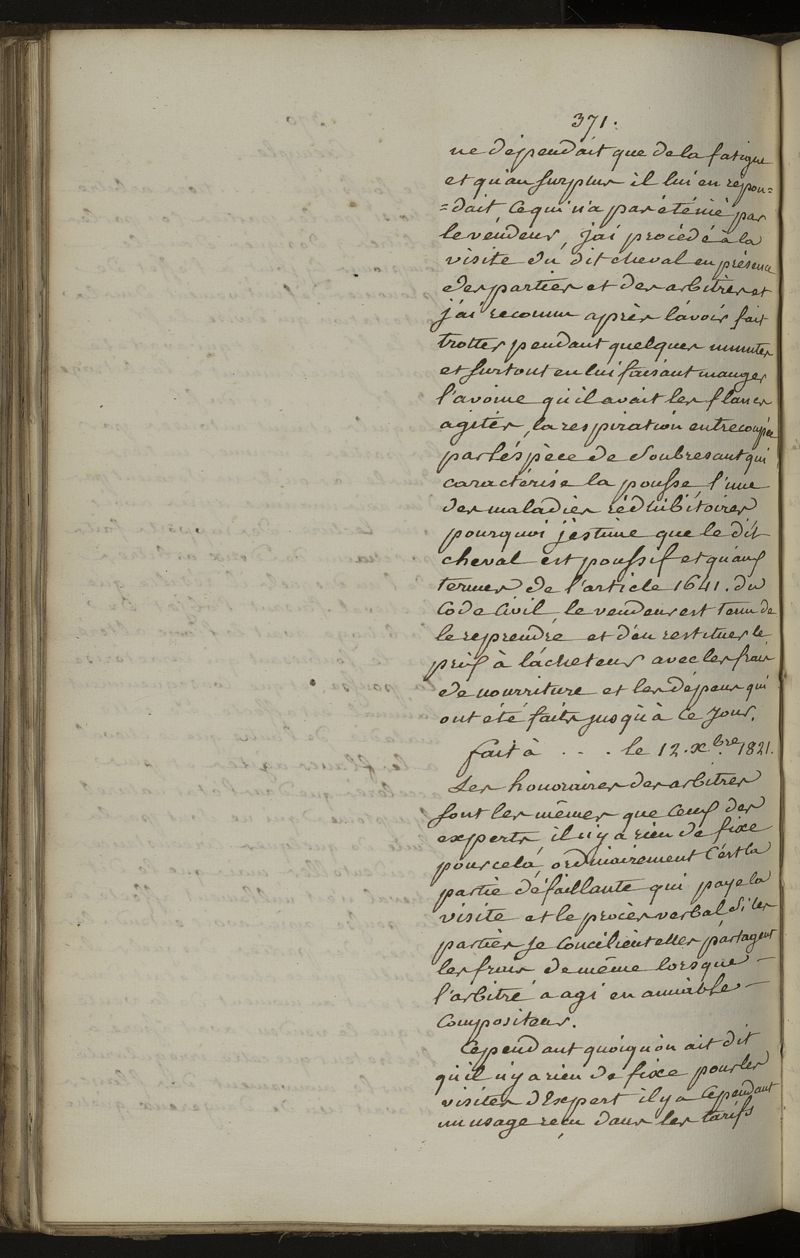 371.
ne dépendait que de la fatigue
et qu'au surplus il lui en répon=
=dait ce qui n'a pas été nié par
le vendeur, j'ai procédé à la
visite du dit cheval en présence
des parties et des arbitres et
j'ai reconnu après l'avoir fait
trotter pendant quelques minutes
et surtout en lui faisant manger
l'avoine qu'il avait les flancs
agités, la respiration entrecoupée
par l'éspèce de soubresaut qui
caractérise la pousse, l'une
des maladies rédhibitoires
pourquoi j'estime que le dit
cheval est poussif et qu'aux
termes de l'article 1641. du
Code Civil le vendeur est tenu de
le reprendre et d'en restituer le
prix à l'acheteur avec les frais
de nourriture et les dépens qui
ont été faits jusqu'à ce jour.
fait à . . . le 12. Xbre 1821.
Les honoraires des arbitres
sont les mêmes que ceux des
experts, il n'y a rien de fixe
pour celà, ordinairement c'est la
partie défaillante qui paye la
visite et le procès verbal si les
parties se concilient elles partagent
les frais de même lorsque —
l'arbitre a agi en amiable —
compositeur.
Cependant quoiqu'on ait dit
qu'il n'y a rien de fixe pour les
visites d'Expert il y a cependant
un usage reçu dans les tarifs